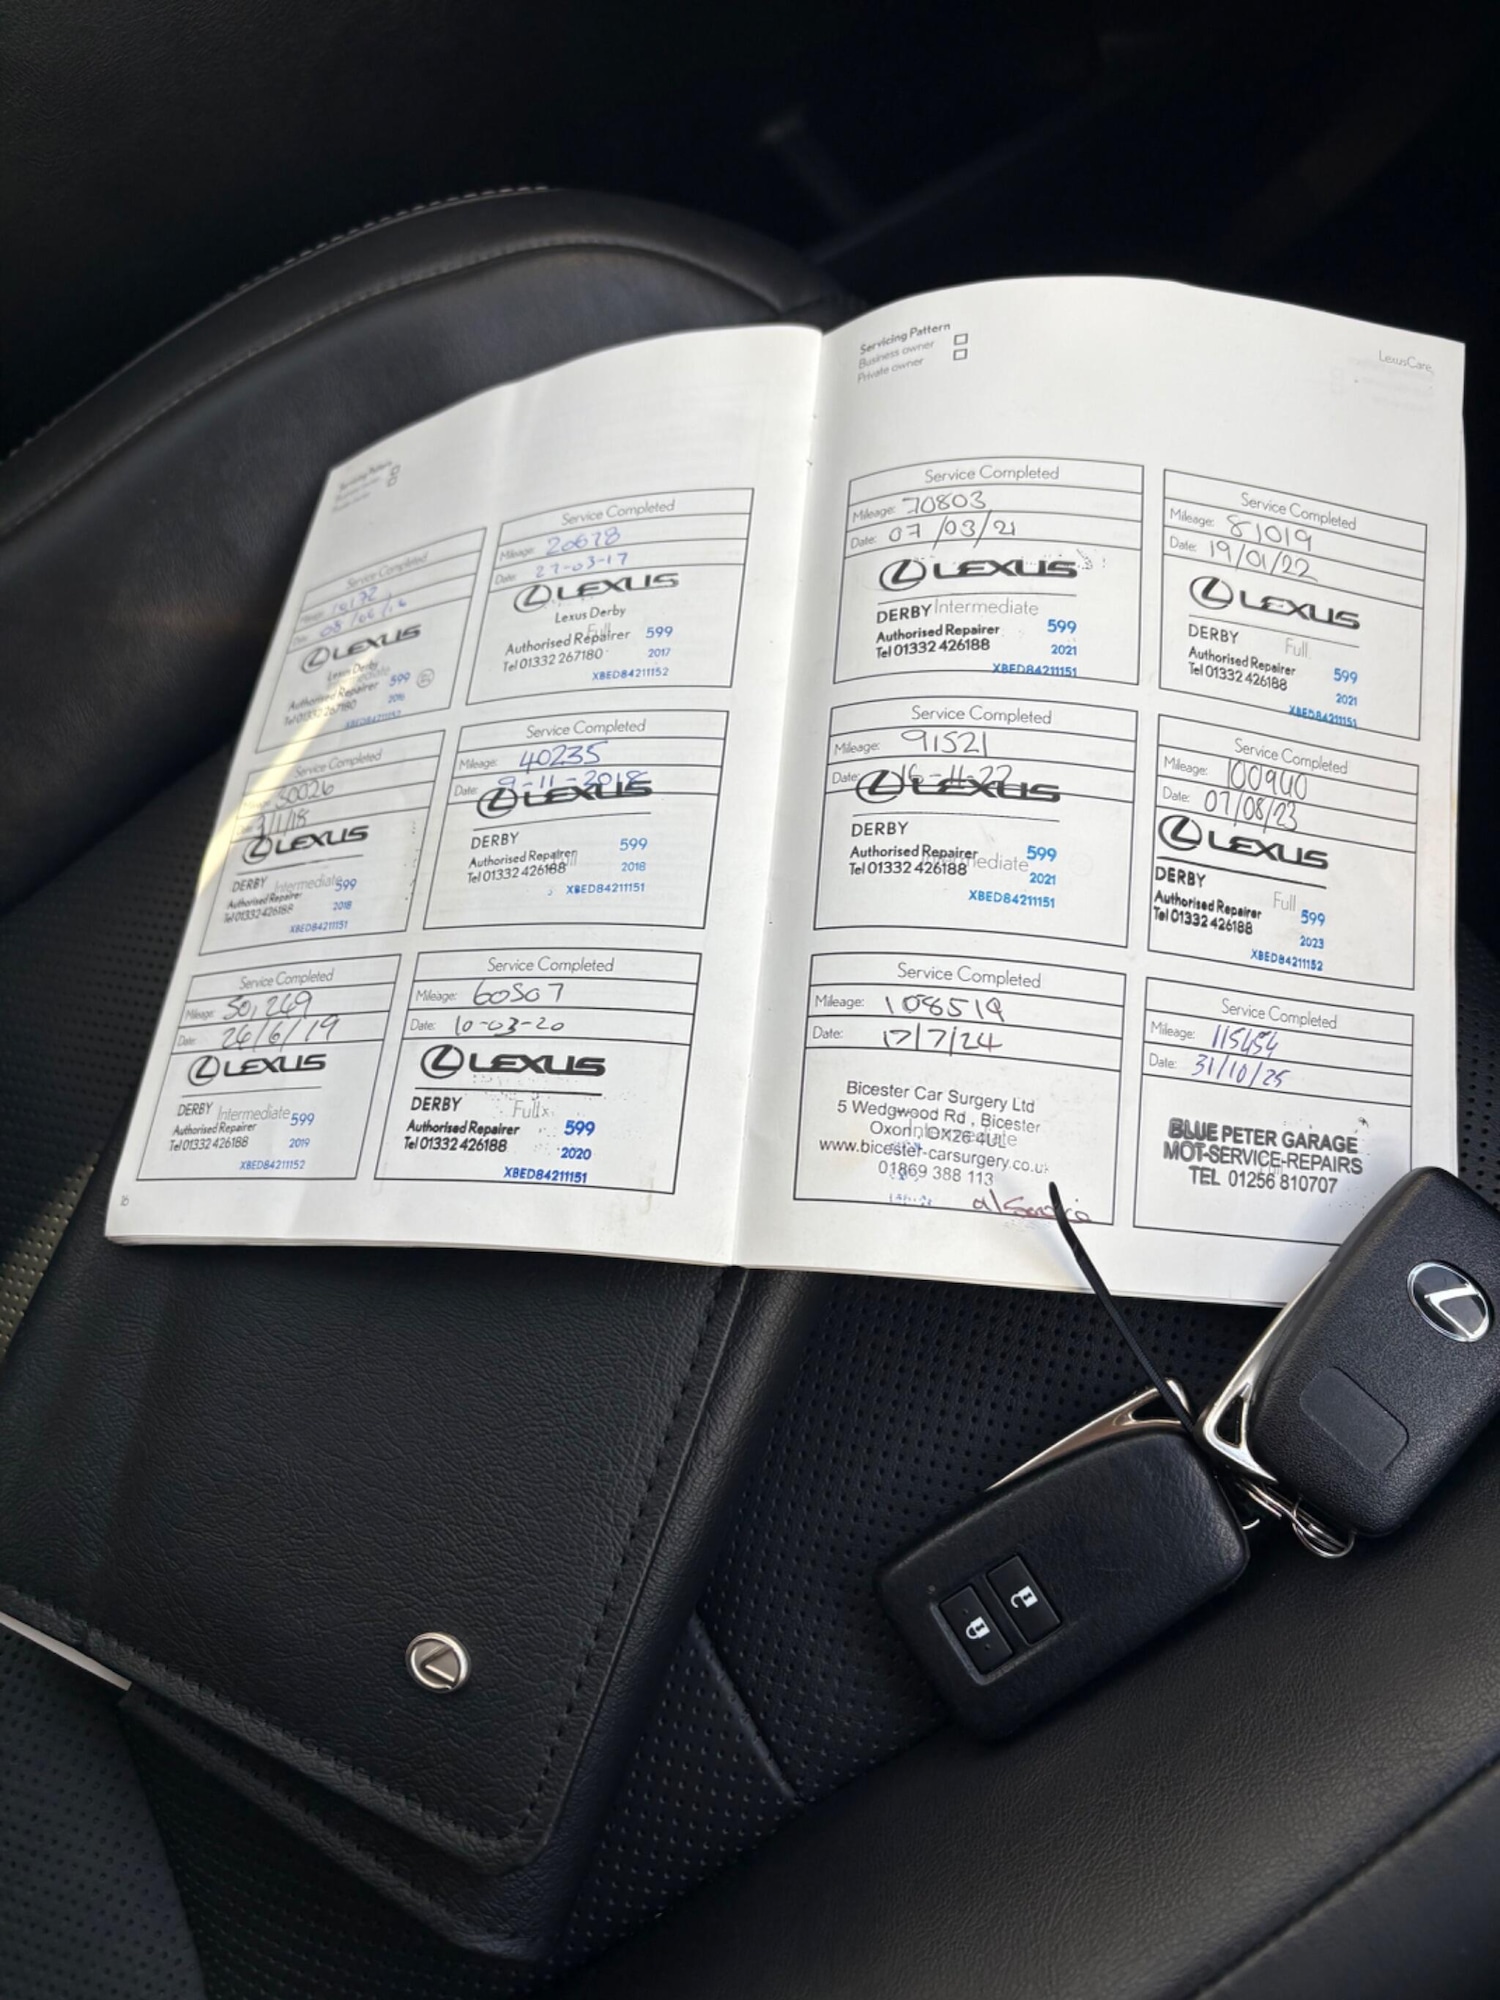 Servicing Pattern
Business owner
Private owner
Service Completed
Mileage: 10172
Date: 08/06/16
LEXUS
Lexus Derby
Intermediate
Authorised Repairer 599
Tel 01332 267180 2016
XBED84211152
Service Completed
Mileage: 20678
Date: 27-03-17
LEXUS
Lexus Derby
Full
Authorised Repairer 599
Tel 01332 267180 2017
XBED84211152
Service Completed
Mileage: 30026
Date: 9/1/18
LEXUS
DERBY Intermediate 599
Authorised Repairer
Tel 01332 426188 2018
XBED84211151
Service Completed
Mileage: 40235
Date: 9-11-2018
LEXUS
DERBY 599
Authorised Repairer Full
Tel 01332 426188 2018
XBED84211151
Service Completed
Mileage: 50,269
Date: 26/6/19
LEXUS
DERBY Intermediate 599
Authorised Repairer
Tel 01332 426188 2019
XBED84211152
Service Completed
Mileage: 60507
Date: 10-03-20
LEXUS
DERBY Full
Authorised Repairer 599
Tel 01332 426188 2020
XBED84211151
16
Servicing Pattern
Business owner
Private owner
LexusCare
Service Completed
Mileage: 70803
Date: 07/03/21
LEXUS
DERBY Intermediate
Authorised Repairer 599
Tel 01332 426188 2021
XBED84211151
Service Completed
Mileage: 81019
Date: 19/01/22
LEXUS
DERBY Full
Authorised Repairer 599
Tel 01332 426188 2021
XBED84211151
Service Completed
Mileage: 91521
Date: 16-11-22
LEXUS
DERBY
Authorised Repairer 599
Tel 01332 426188 Intermediate 2021
XBED84211151
Service Completed
Mileage: 100940
Date: 07/08/23
LEXUS
DERBY
Authorised Repairer Full 599
Tel 01332 426188 2023
XBED84211152
Service Completed
Mileage: 108519
Date: 17/7/24
Bicester Car Surgery Ltd
5 Wedgwood Rd, Bicester
Oxon, OX26 4UL
Intermediate
www.bicester-carsurgery.co.uk
01869 388 113
Service Completed
Mileage: 115454
Date: 31/10/25
BLUE PETER GARAGE
MOT-SERVICE-REPAIRS
TEL 01256 810707